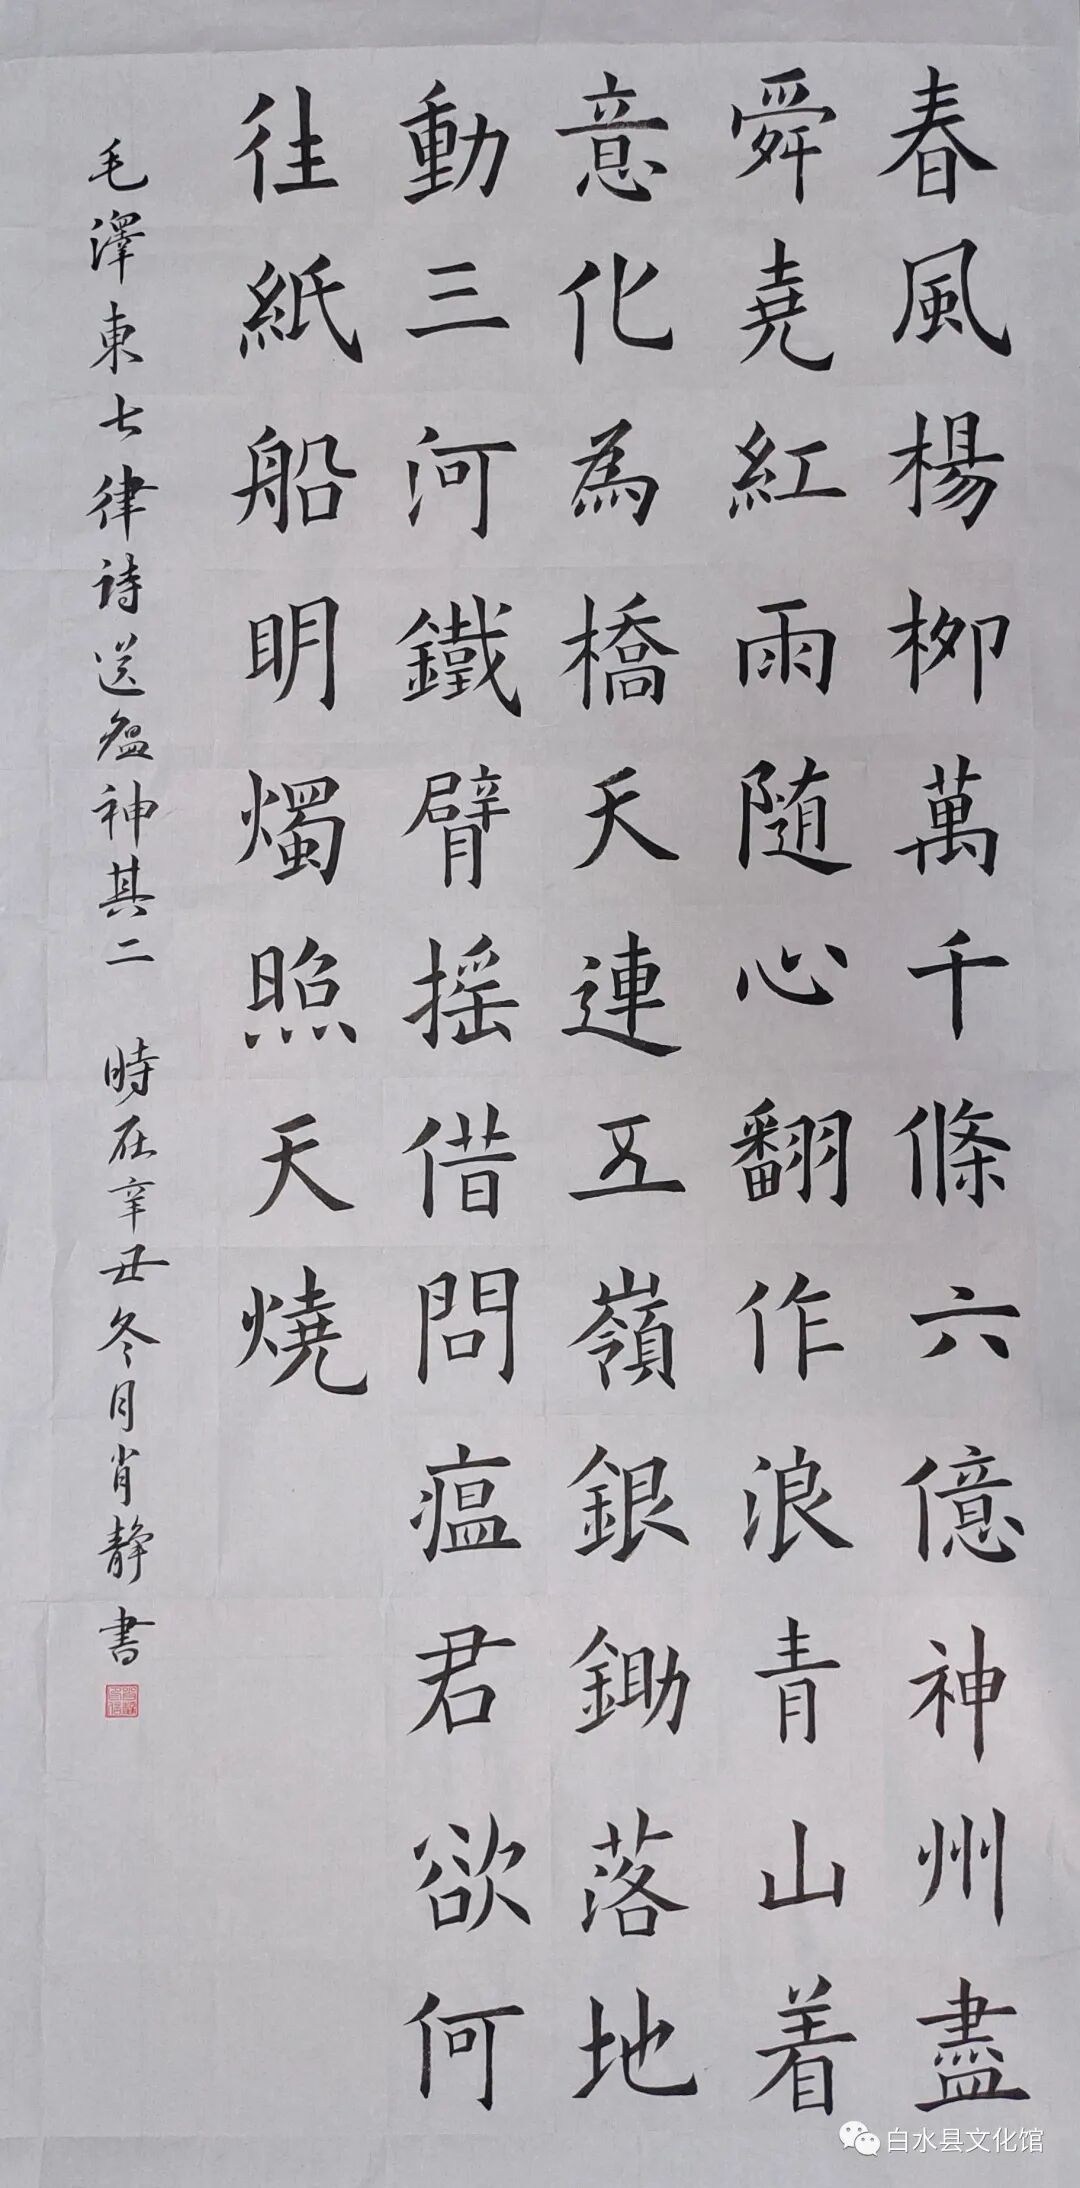 春風楊柳萬千條六億神州盡
舜堯紅雨随心翻作浪青山着
意化為橋天連五嶺銀鋤落地
動三河鐵臂摇借問瘟君欲何
往紙船明燭照天燒
毛澤東七律詩送瘟神其二 時在辛丑冬月肖静書
白水县文化馆